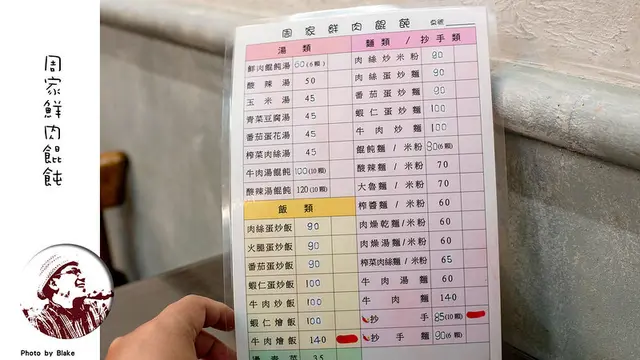 周家鮮肉餛飩
Photo by Blake
周家鮮肉餛飩 桌號
湯類
鮮肉餛飩湯 60(6顆)
酸辣湯 50
玉米湯 45
青菜豆腐湯 45
番茄蛋花湯 45
榨菜肉絲湯 45
牛肉湯餛飩 100(10顆)
酸辣湯餛飩 120(10顆)
飯類
肉絲蛋炒飯 90
火腿蛋炒飯 90
番茄蛋炒飯 90
蝦仁蛋炒飯 100
牛肉炒飯 100
蝦仁燴飯 100
牛肉燴飯 140
燙青菜 35
麵類/抄手類
肉絲炒米粉 90
肉絲蛋炒麵 90
番茄蛋炒麵 90
蝦仁蛋炒麵 100
牛肉炒麵 100
餛飩麵/米粉 80(6顆)
酸辣麵/米粉 70
大魯麵/米粉 70
榨醬麵/米粉 60
肉燥乾麵/米粉 60
肉燥湯麵/米粉 60
榨菜肉絲麵/米粉 65
牛肉湯麵 60
牛肉麵 140
抄手 85(10顆)
抄手麵 90(6顆)